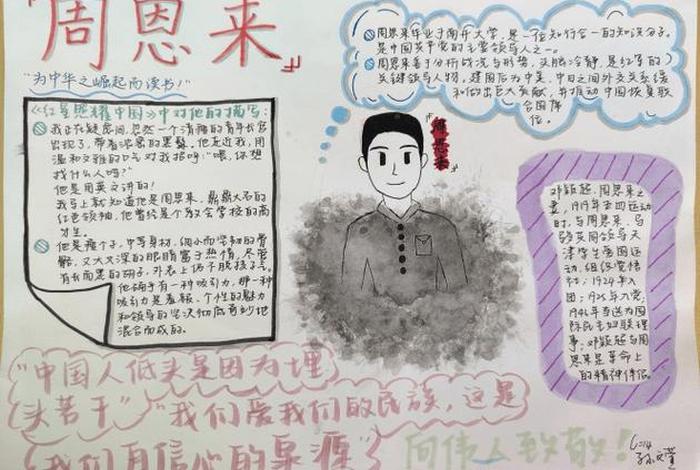 周恩来
"为中华之崛起而读书!"
周恩来毕业于南开大学，是一位知行合一的知识分子。
是中国共产党的主要领导人之一。
周恩来善于分析战况与形势，头脑冷静，是红军的
关键领导人物。建国后为中美、中日之间外交关系缓
和做出巨大贡献，并推动中国恢复联
合国席
位。
《红星照耀中国》中对他的描写:
我正在疑虑间，忽然一个清瘦的青年长官
出现了，带着浓密的黑髯。他走近我，用
温和文雅的口气对我招呼："喂，你想
找什么人吗?"
他是用英文讲的!
我马上就知道他是周恩来，鼎鼎大名的
红色领袖，他曾经是个教会学校的高
才生。
他是瘦个子，中等身材，细小而坚韧的骨
骼，又大又深的眼睛富于热情，尽管
有长而黑的胡子，外表上仍不脱孩子气。
他确乎有一种吸引力，那一种
吸引力是羞赧、个性的魅力
和领导的坚决彻底奇妙地
混合而成的。
周恩来
邓颖超，周恩来之
妻，1919年五四运动
时，与周恩来、马
骏共同领导天
津学生爱国运
动，组织觉悟
社；1924年入
团；1925年入党；
国际民主妇联理
事；邓颖超与周
恩来是革命上
的精神伴侣。
"中国人低头是因为埋
头苦干" "我们爱我们的民族，这是
我们自信心的泉源"
向伟人致敬!